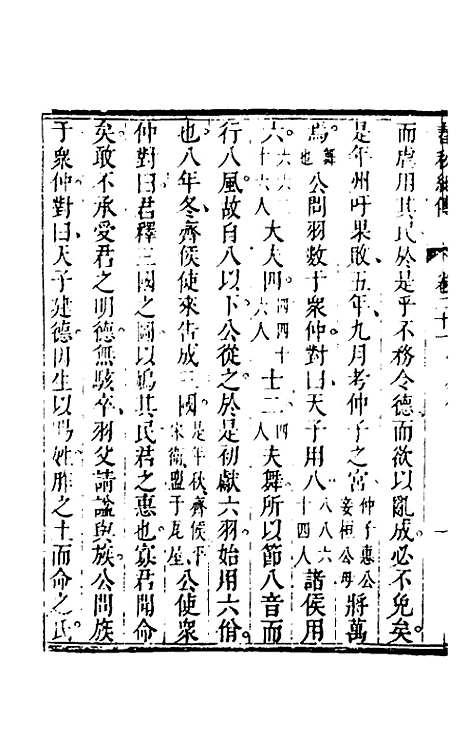 春秋紀傳 卷二十一
而虐用其民於是乎不務令德而欲以亂成必不免矣
是年州吁果敗五年九月考仲子之宮仲子惠公妾桓公母將萬
焉舞也公問羽數于衆仲對曰天子用八八八六十四人諸侯用
六六六三十六人大夫四四四十六人士二四人夫舞所以節八音而
行八風故自八以下公從之於是初獻六羽始用六佾
也八年冬齊侯使來告成三國是年秋齊侯平宋衛盟于瓦屋公使衆
仲對曰君釋三國之圖以鳩其民君之惠也寡君聞命
矣敢不承受君之明德無駭卒羽父請謚與族公問族
于衆仲對曰天子建德因生以爲姓胙之土而命之氏